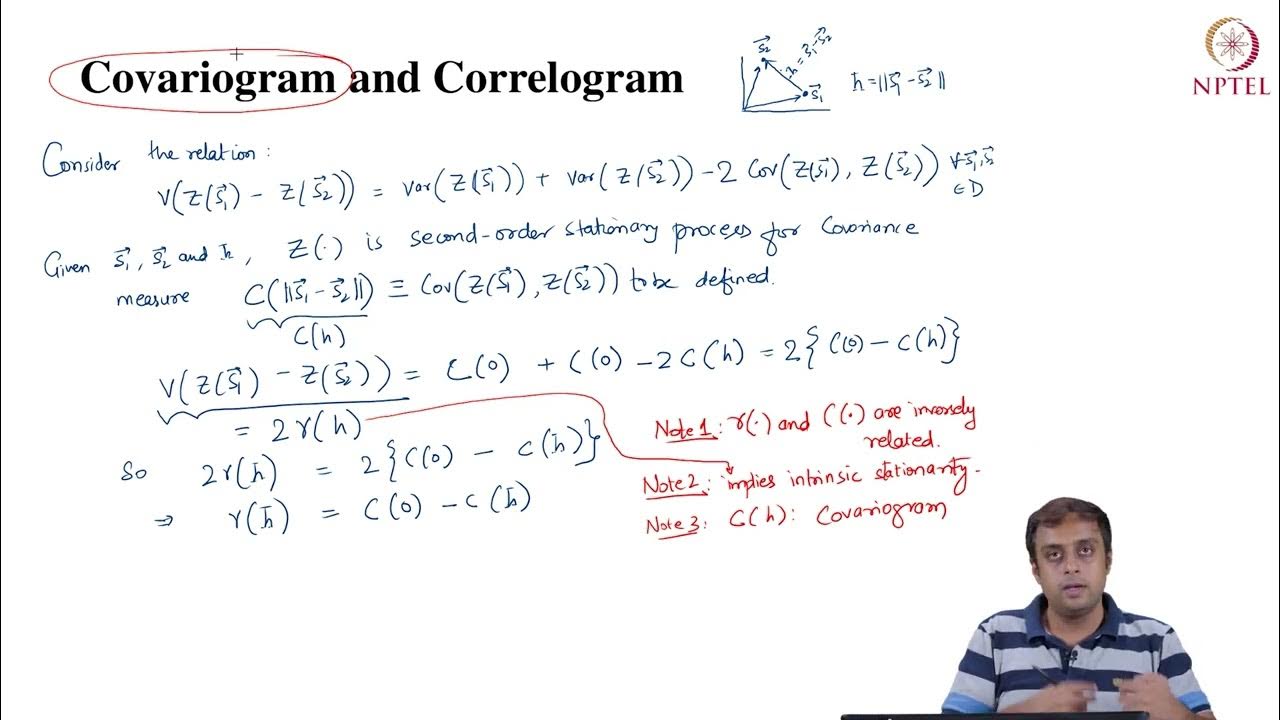 Covariogram and Correlogram
S⃗₂
h = S⃗₁-S⃗₂
S⃗₁
h = ||S⃗₁ - S⃗₂||
NPTEL
Consider the relation:
V(Z(S⃗₁) - Z(S⃗₂)) = Var(Z(S⃗₁)) + Var(Z(S⃗₂)) - 2 Cov(Z(S⃗₁), Z(S⃗₂)) ∀ S⃗₁, S⃗
∈ D
Given S⃗₁, S⃗₂ and h, Z(·) is second-order stationary process for Covariance
measure C(||S⃗₁ - S⃗₂||) ≡ Cov(Z(S⃗₁), Z(S⃗₂)) to be defined.
C(h)
V(Z(S⃗₁) - Z(S⃗₂)) = C(0) + C(0) - 2C(h) = 2{C(0) - C(h)}
= 2γ(h)
So 2γ(h) = 2{C(0) - C(h)}
⇒ γ(h) = C(0) - C(h)
Note 1: γ(·) and C(·) are inversely
related.
Note 2: implies intrinsic stationarity.
Note 3: C(h): Covariogram